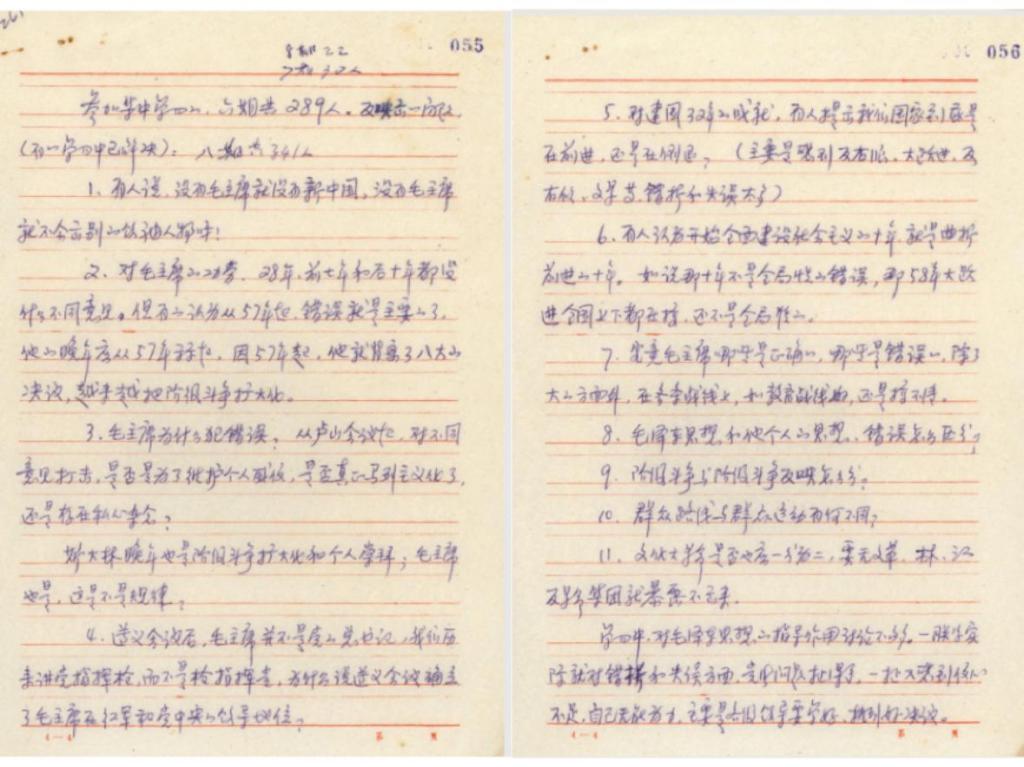 055
参加集中学习的,六期共289人。反映出一部份
(有的学习中已解决): 八期共341人
1、有人说,没有毛主席就没有新中国,没有毛主席
就不会有别的领袖人物吗!
2、对毛主席的功劳,28年,前七年和后十年都没
什么不同意见。但有的认为从57年起,错误就是主要的了,
他的晚年应从57年算起,因57年起,他就背离了八大的
决议,越来越把阶级斗争扩大化。
3、毛主席为什么犯错误?从庐山会议起,对不同
意见打击,是否是为了维护个人威信,是否真正马列主义化了,
还是存在私心杂念?
斯大林晚年也是阶级斗争扩大化和个人崇拜;毛主席
也是,这是不是规律?
4、遵义会议后,毛主席并不是党的总书记,我们历
来讲党指挥枪,而不是枪指挥党,为什么说遵义会议确立
了毛主席在红军和党中央的领导地位?
4—4 第 页
056
5、对建国32年的成就,有人提出我们国家到底是
在前进,还是在倒退?(主要是嫌到反右派,大跃进,反
右倾、文革等错折和失误太多)
6、有人认为开始全面建设社会主义的十年就是曲折
前进的十年。如说那十年不是全局性的错误,那58年大跃
进全国上下都在搞,还不是全局性的。
7、究竟毛主席哪些是正确的,哪些是错误的,除了
大的方面外,在各条战线上,如教育战线的,还是搞不清。
8、毛泽东思想和他个人的思想、错误怎么区分?
9、阶级斗争与阶级斗争反映怎么分?
10、群众路线与群众运动有何不同?
11、文化大革命是否也应一分为二,要无文革,林、江
反革命集团就暴露不出来。
学习中,对毛泽东思想的指导作用讨论不多。一联系实
际就对错搞和失误方面,
不足,自己无能为力,主要是各级领导要学好,执行好决议。
4—4 第 页